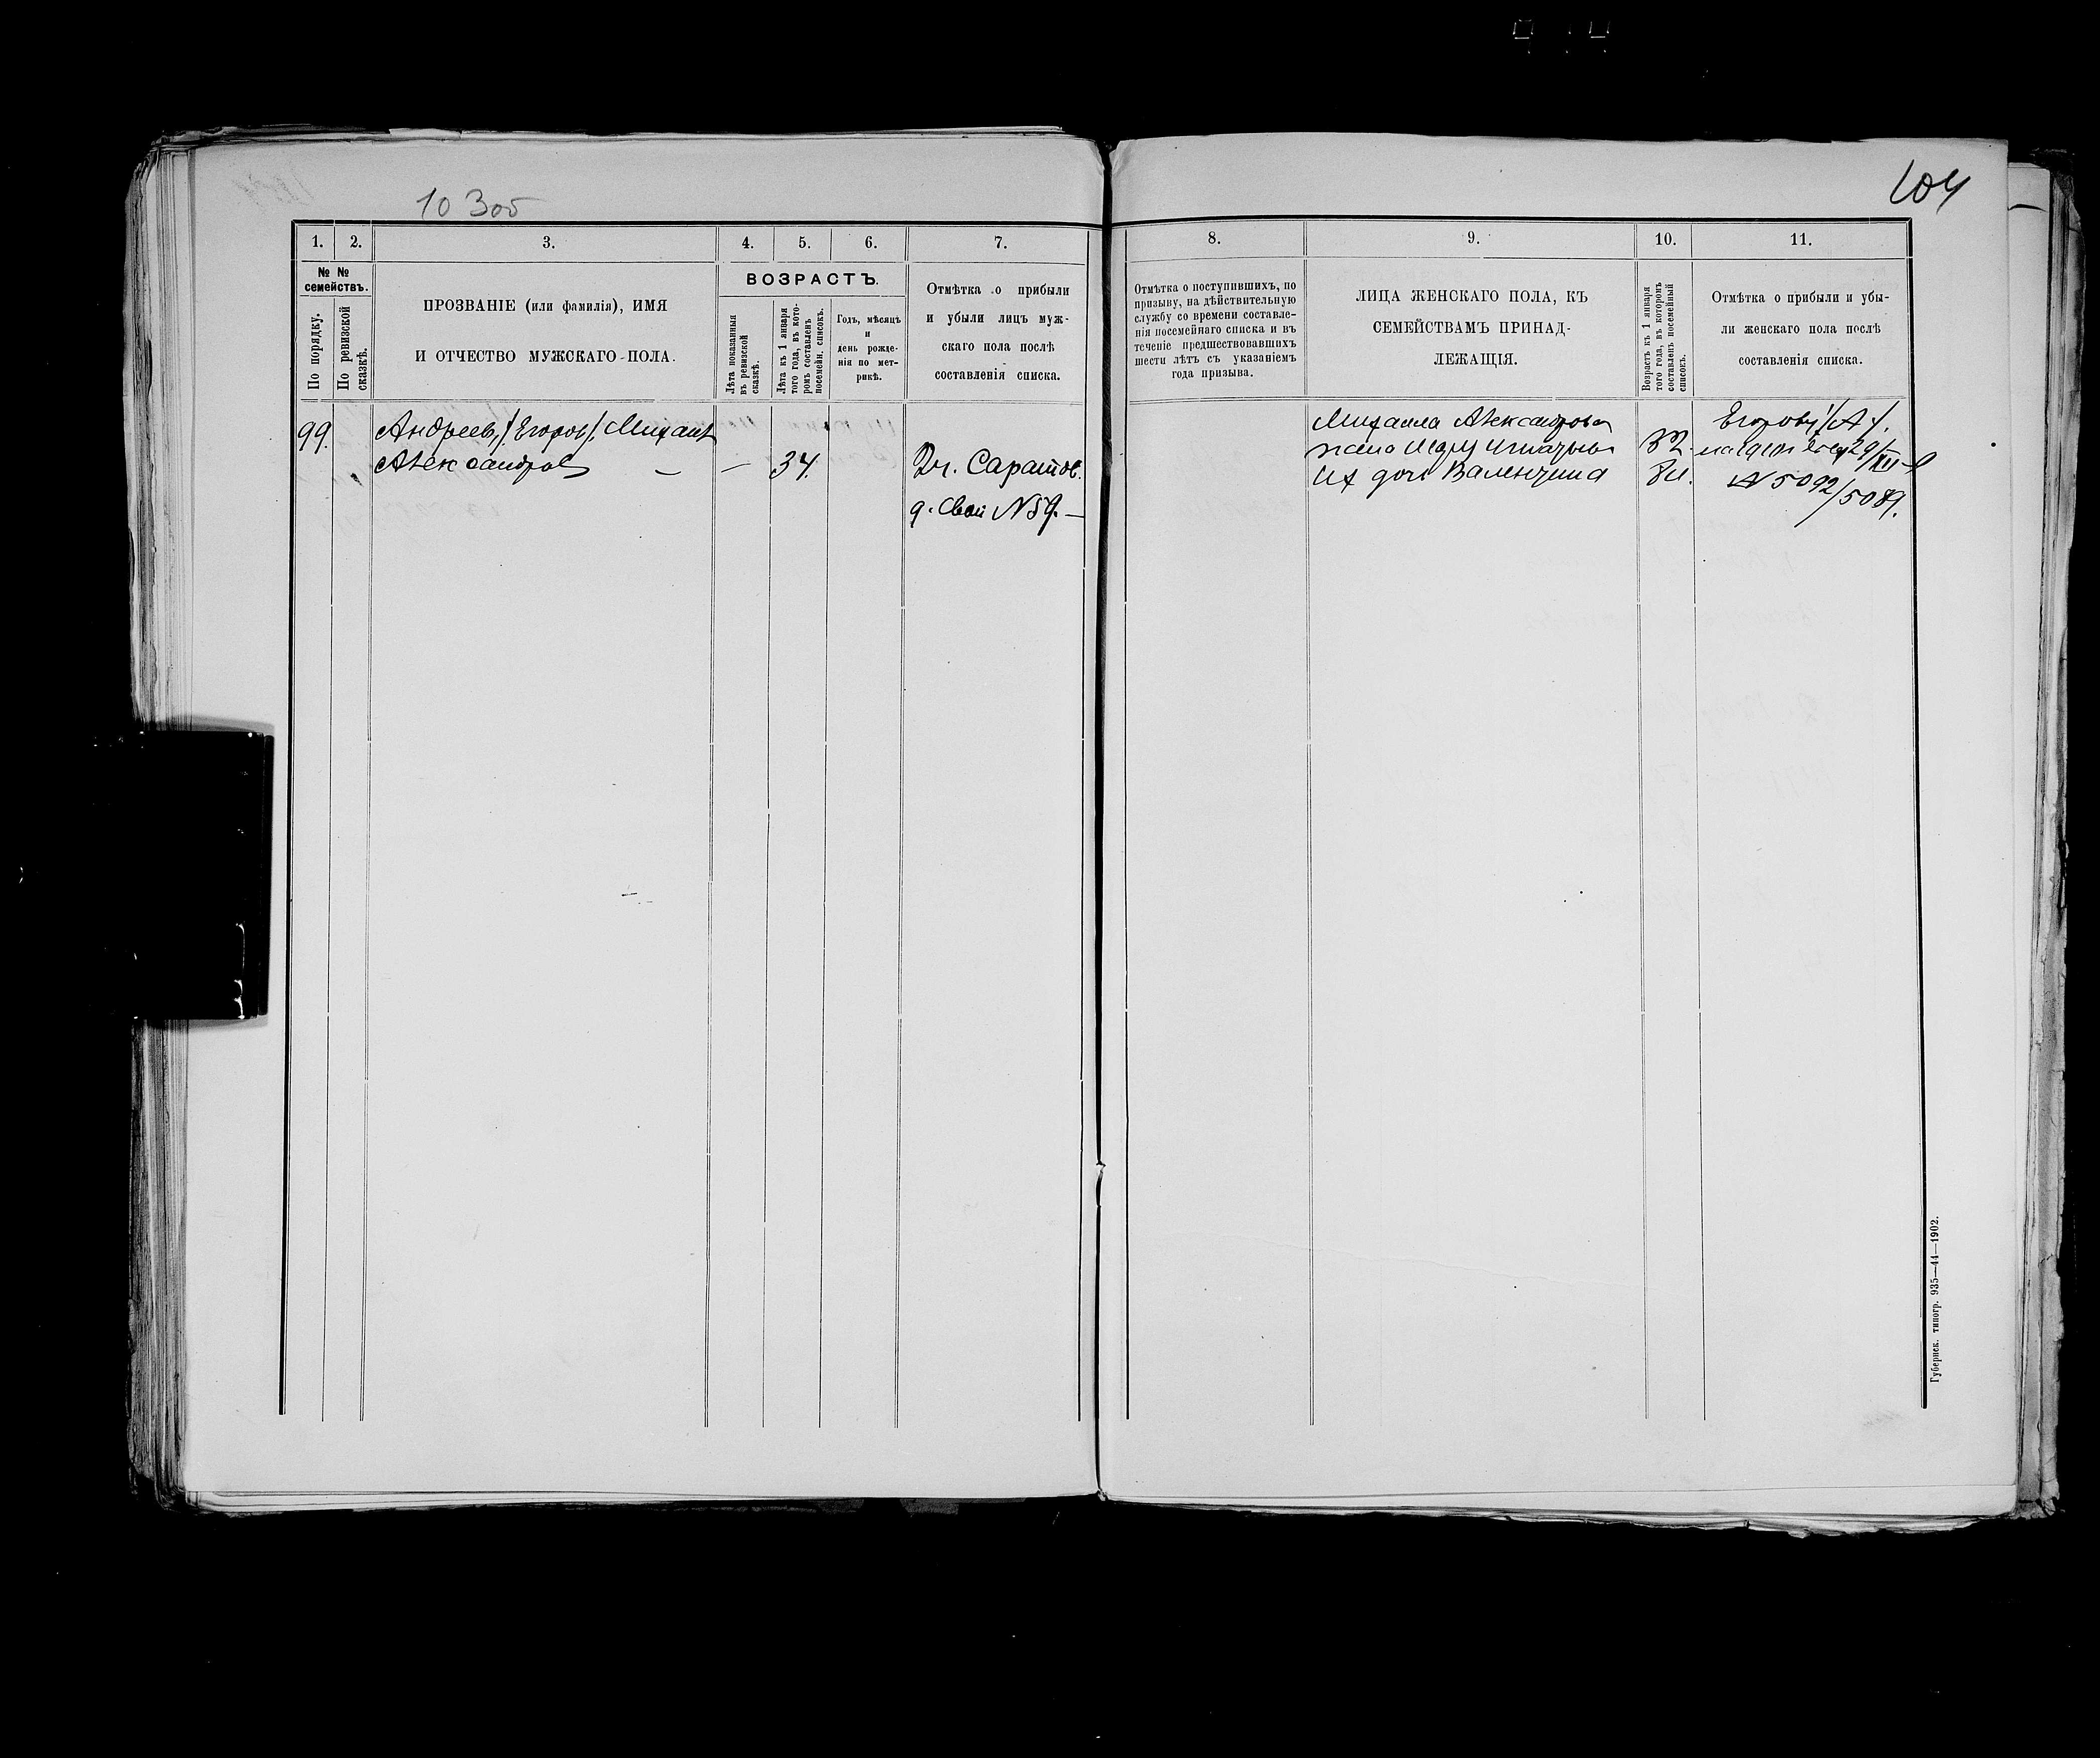 10 Зоб
104
1. 2. 3. 4. 5. 6. 7.
№ № семействъ.
По порядку.
По ревизской сказкѣ.
ПРОЗВАНІЕ (или фамилія), ИМЯ
И ОТЧЕСТВО МУЖСКАГО ПОЛА.
ВОЗРАСТЪ.
Лѣта показанныя въ ревизской сказкѣ.
Лѣта къ 1 января того года, въ которомъ составленъ посемейн. списокъ.
Годъ, мѣсяцъ
и
день рожде-
нія по мет-
рикѣ.
Отмѣтка о прибыли
и убыли лицъ муж-
скаго пола послѣ
составленія списка.
99.
Андреев, /Егоров/, Михаил
Александров — — 34.
Дч. Саратов.
д. Свой N 59. —
8. 9. 10. 11.
Отмѣтка о поступившихъ, по
призыву, на дѣйствительную
службу со времени составле-
нія посемейнаго списка и въ
теченіе предшествовавшихъ
шести лѣтъ съ указаніемъ
года призыва.
ЛИЦА ЖЕНСКАГО ПОЛА, КЪ
СЕМЕЙСТВАМЪ ПРИНАД-
ЛЕЖАЩІЯ.
Возрастъ къ 1 января
того года, въ которомъ
составленъ посемейный
списокъ.
Отмѣтка о прибыли и убы-
ли женскаго пола послѣ
составленія списка.
Михаила Александрова
жена 32.
Их дочь Валентина 8
Егорову /А/.
29/XII
N 5092/5089.
Губернск. типогр. 935—44—1902.